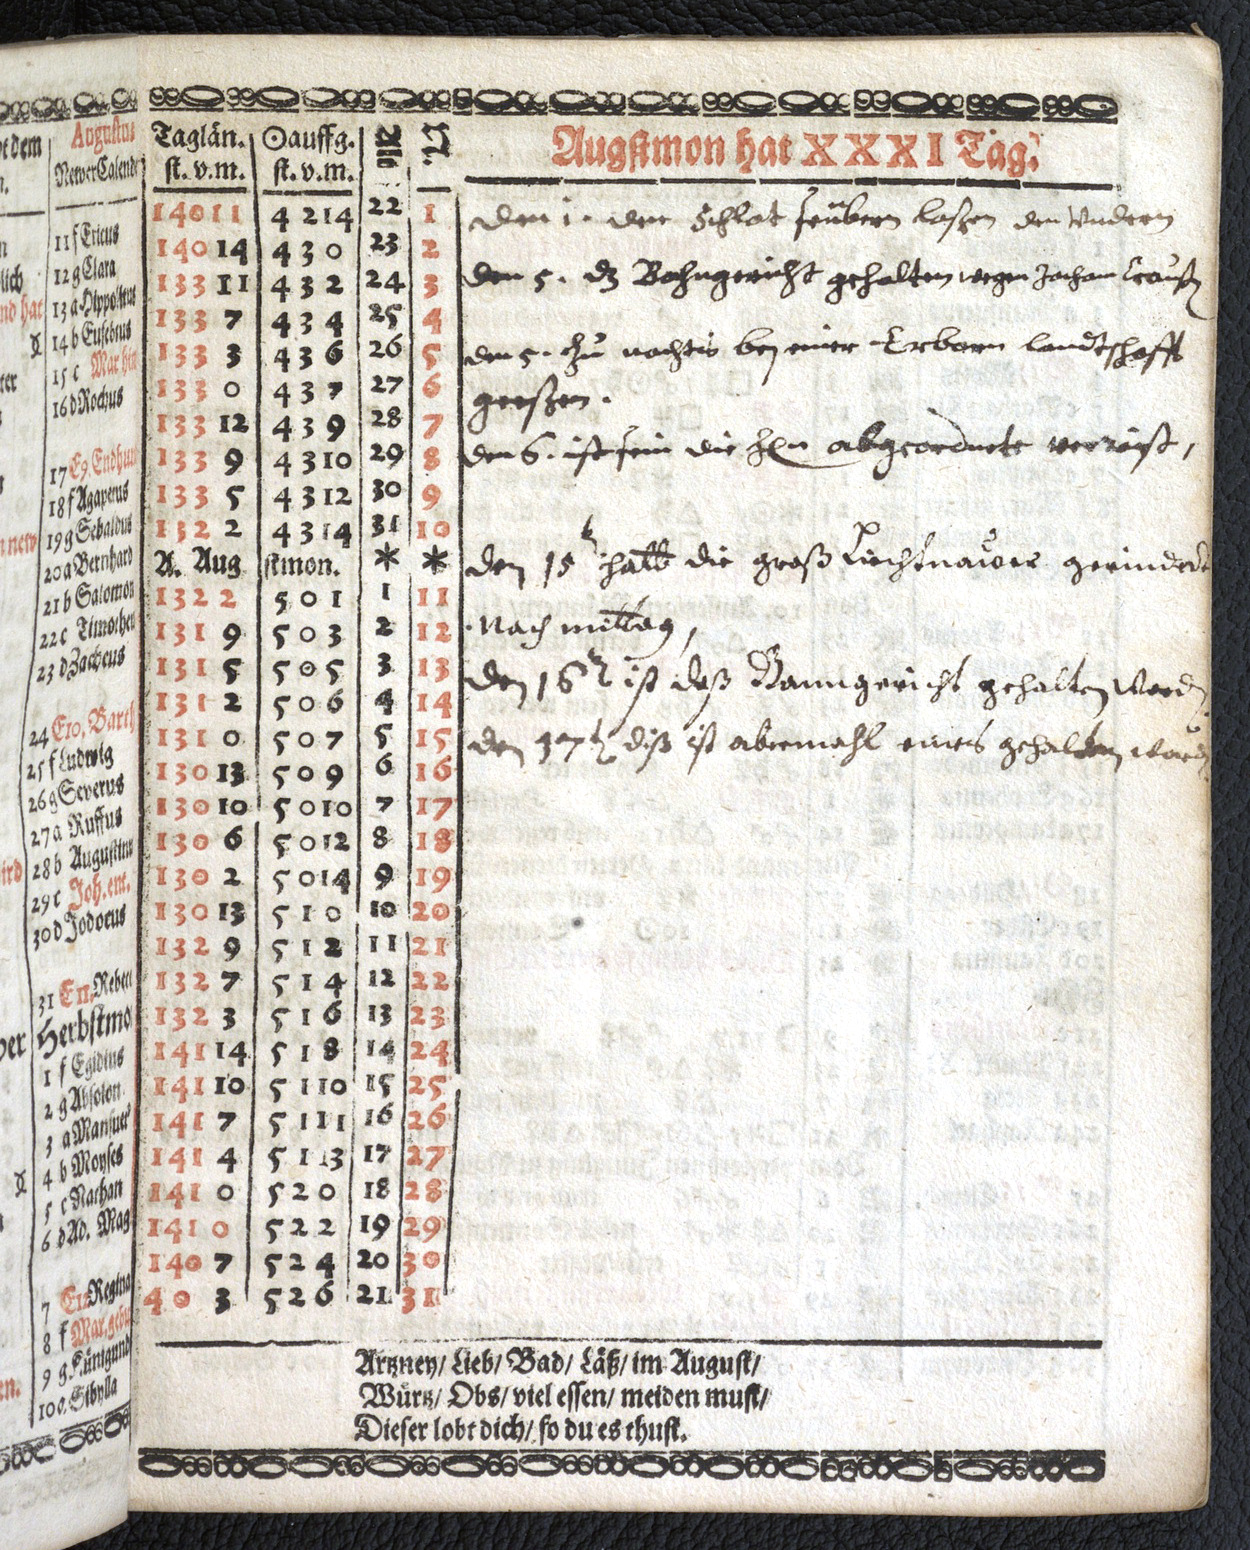 ot dem
Augustus
NewerCalende
11 f Ericus
12 g Clara
13 a Hippolitus
14 b Eusebius
15 c Mar. him
16 d Rochus
17 E9 Endhun
18 f Agapetus
19 g Sebaldus
20 a Bernhard
21 b Salomon
22 c Timotheu
23 d Zacheus
24 E10. Barth
25 f Ludwig
26 g Severus
27 a Ruffus
28 b Augustinu
29 c Joh. ent.
30 d Jodocus
31 E11. Rebecc
Herbstmo
1 f Egidius
2 g Absolon
3 a Mansuet
4 b Moyses
5 c Nathan
6 d Ad. Mag
7 E12 Regina
8 f Mar. gebu
9 g Künigund
10 a Sibylla
Taglän. ☉auffg. Alt N.
st. v. m. st. v. m.
Augstmon hat XXXI Tag.
14 0 11 4 2 14 22 1
14 0 14 4 3 0 23 2
13 3 11 4 3 2 24 3
13 3 7 4 3 4 25 4
13 3 3 4 3 6 26 5
13 3 0 4 3 7 27 6
13 3 12 4 3 9 28 7
13 3 9 4 3 10 29 8
13 3 5 4 3 12 30 9
13 2 2 4 3 14 31 10
A. Aug stmon. * *
13 2 2 5 0 1 1 11
13 1 9 5 0 3 2 12
13 1 5 5 0 5 3 13
13 1 2 5 0 6 4 14
13 1 0 5 0 7 5 15
13 0 13 5 0 9 6 16
13 0 10 5 0 10 7 17
13 0 6 5 0 12 8 18
13 0 2 5 0 14 9 19
13 0 13 5 1 0 10 20
13 2 9 5 1 2 11 21
13 2 7 5 1 4 12 22
13 2 3 5 1 6 13 23
14 1 14 5 1 8 14 24
14 1 10 5 1 10 15 25
14 1 7 5 1 11 16 26
14 1 4 5 1 13 17 27
14 1 0 5 2 0 18 28
14 1 0 5 2 2 19 29
14 0 7 5 2 4 20 30
4 0 3 5 2 6 21 31
den 1. den Schlot seübern laßen den Undern
den 5. dz Bahngericht gehalten wegen Jocham
den 5. zu nachts bey einer Erbarn landtschafft
geeßen.
den 6. die hhn abgeordnete verreist,
den 15 die groß
Nach mittag,
den 16 ist daß Banngericht gehalten
den 17 diß ist abermahl eines gehalten
Artzney/ Lieb/ Bad/ Läß/ im August/
Würtz/ Obs/ viel essen/ meiden must/
Dieser lobt dich/ so du es thust.